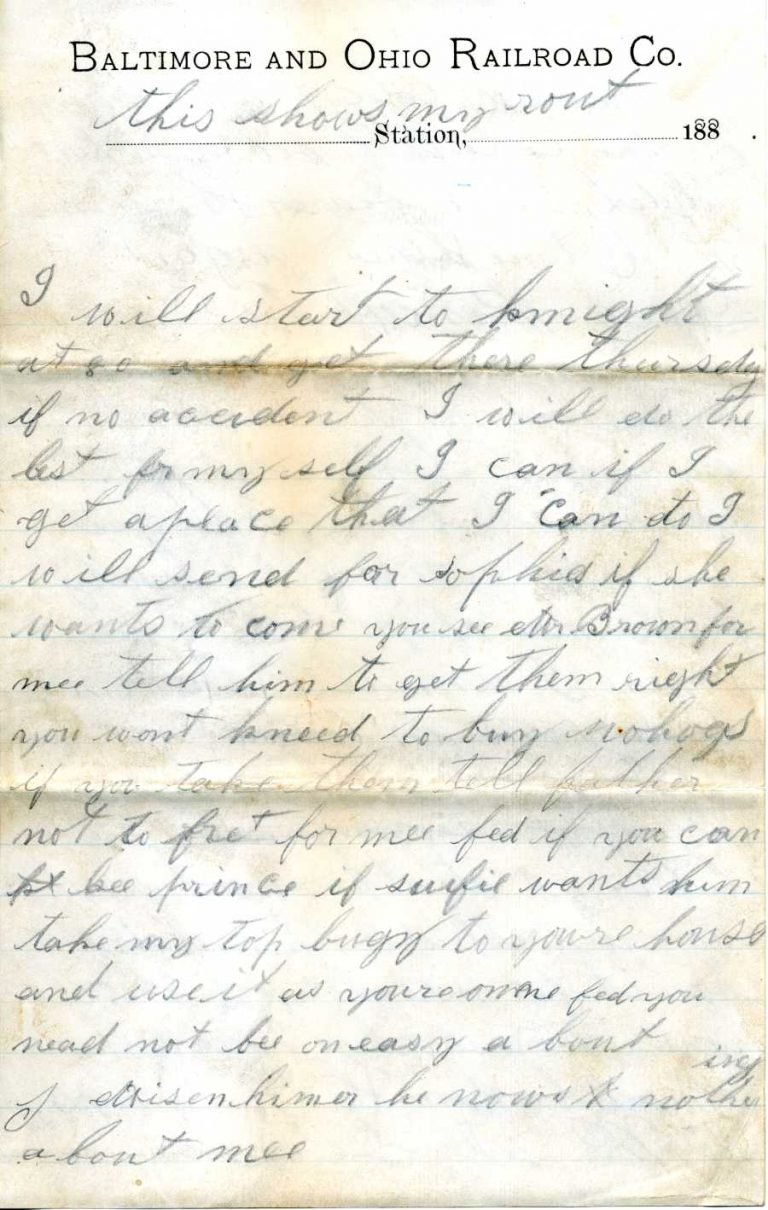 BALTIMORE AND OHIO RAILROAD CO.
this shows my rout
Station, 188 .
I will start to knight
at 80 and get there thursday
if no accident I will do the
best for my self I can if I
get aplace that I can do I
will send for sophia if she
wants to come you see Mr Brown for
mee tell him to get them right
you wont kneed to buy no hogs
if you take them tell father
not to fret for mee fed if you can
bee prince if sufie wants him
take my top bugy to youre house
and use it as youre owne fed you
nead not bee oneasy a bout
J he nows nothe ing
a bout mee